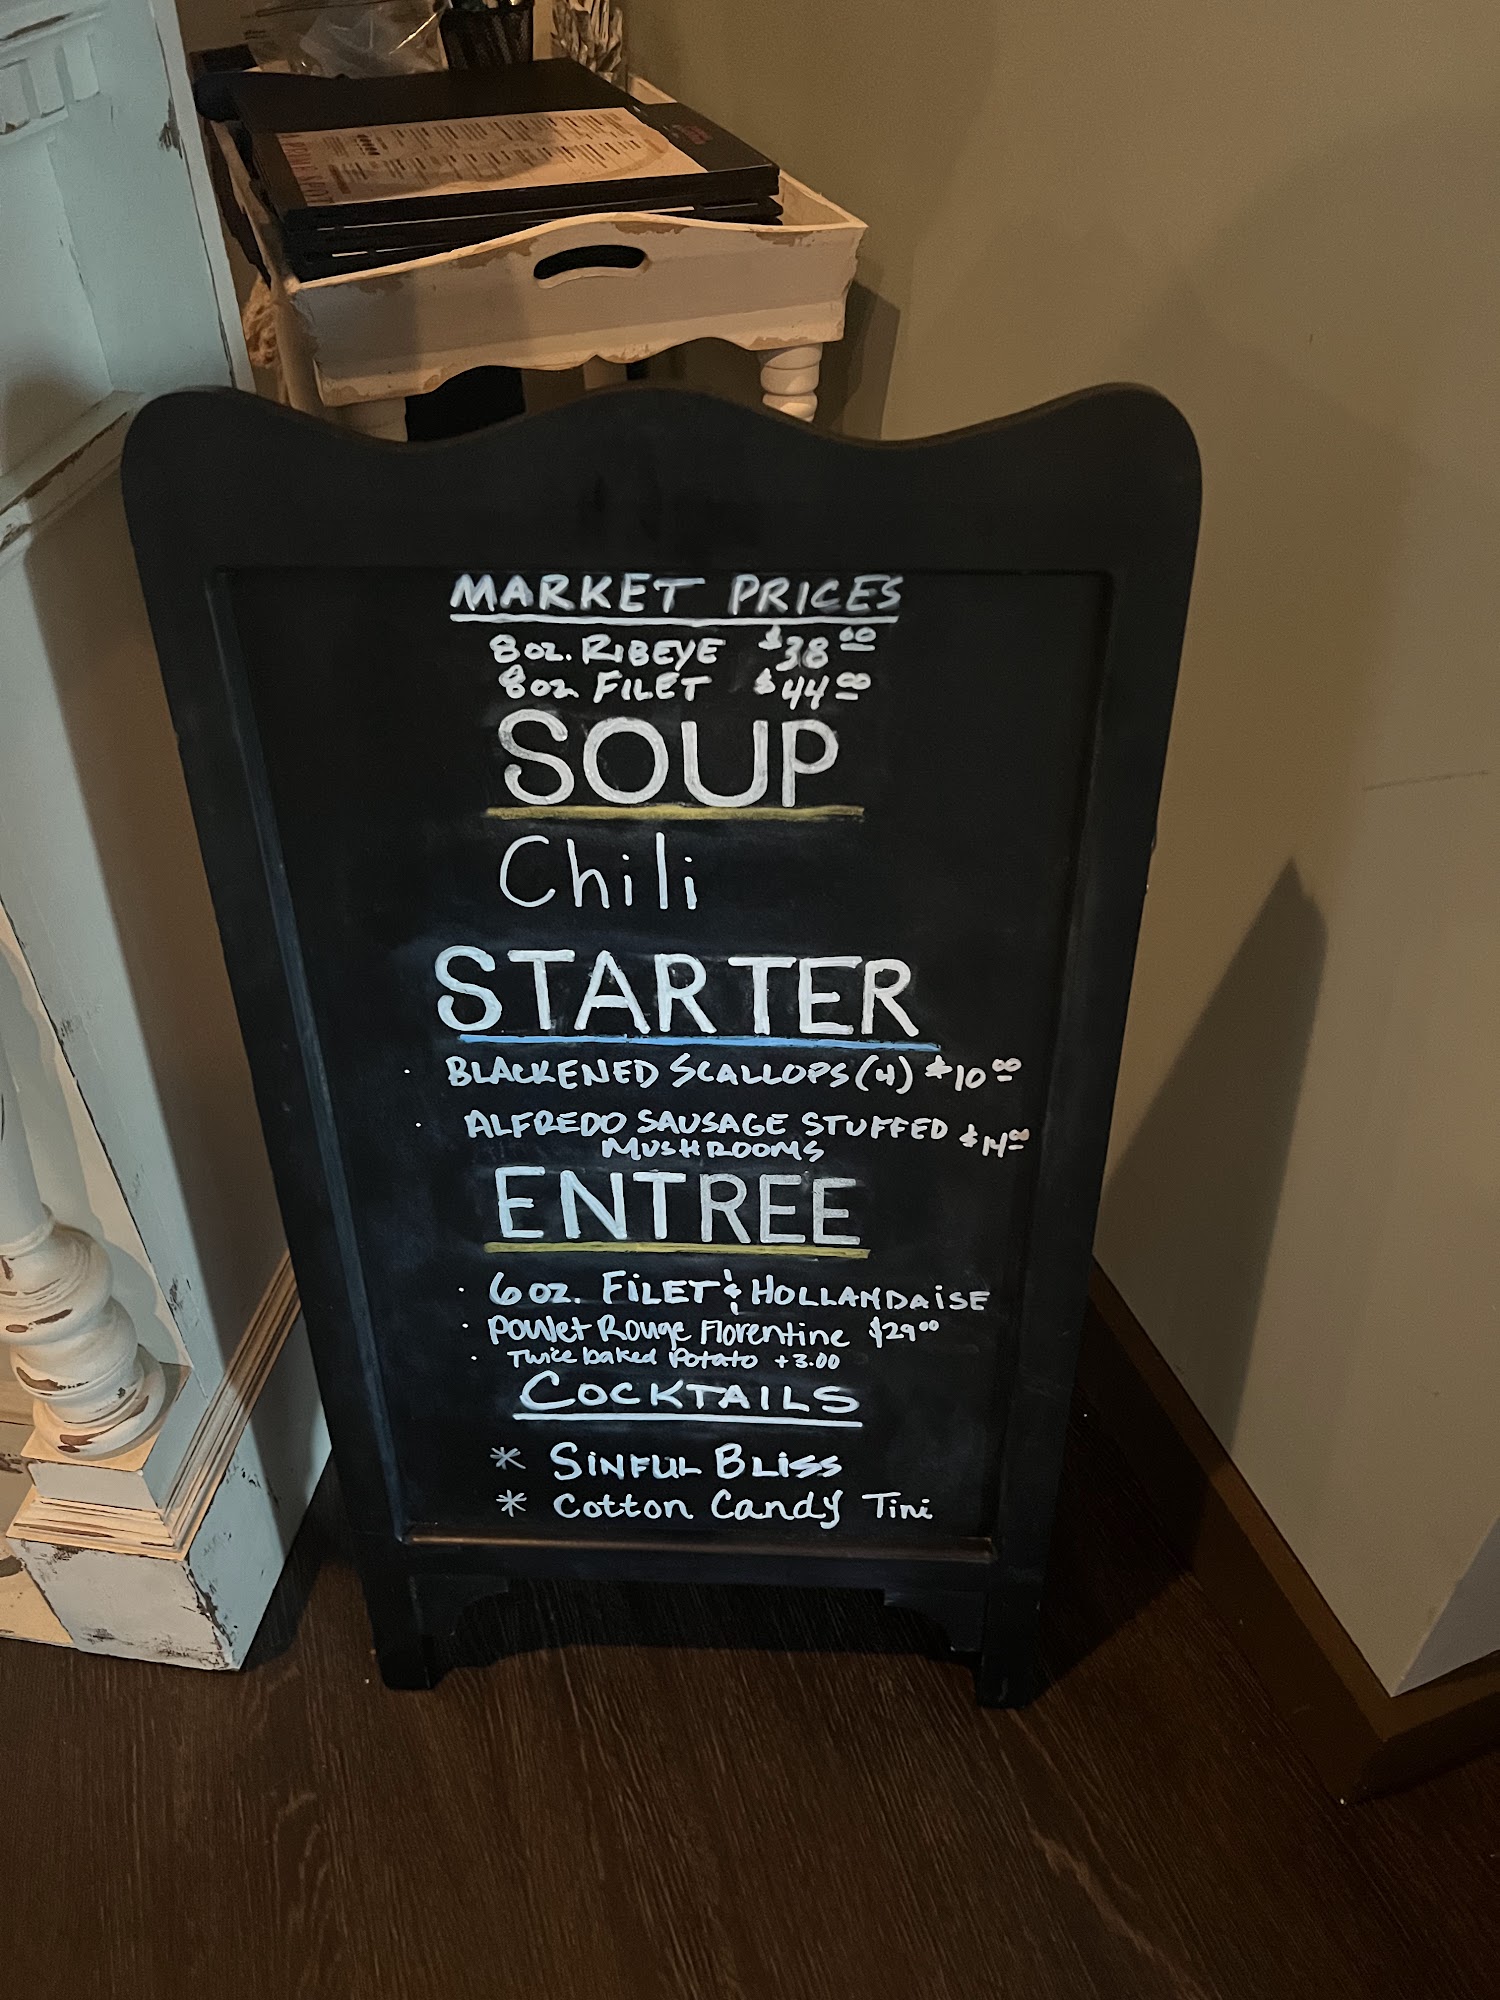 A PRIME SPOT
MARKET PRICES
8oz. RIBEYE $38.00
8oz FILET $44.00
SOUP
Chili
STARTER
· BLACKENED SCALLOPS (4) $10.00
· ALFREDO SAUSAGE STUFFED $14.00
MUSHROOMS
ENTREE
· 6oz. FILET & HOLLANDAISE
· Poulet Rouge Florentine $29.00
· Twice baked Potato +3.00
COCKTAILS
* SINFUL BLISS
* Cotton Candy Tini